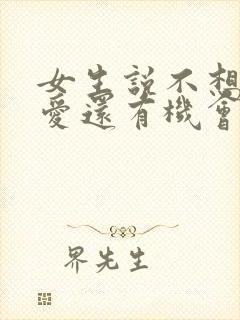 女生説不想
愛還有機會
界先生